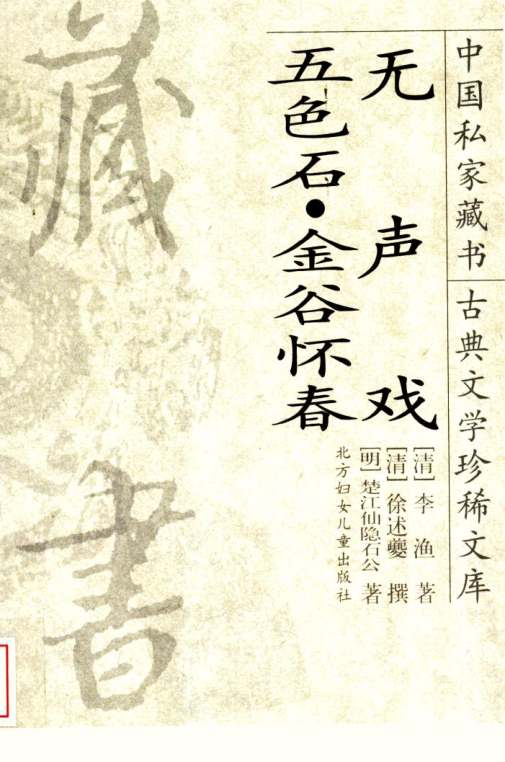 中国私家藏书
古典文学珍稀文库
无声戏
五色石·金谷怀春
[清]李渔 著
[清]徐述夔 撰
[明]楚江仙隐石公 著
北方妇女儿童出版社
藏書